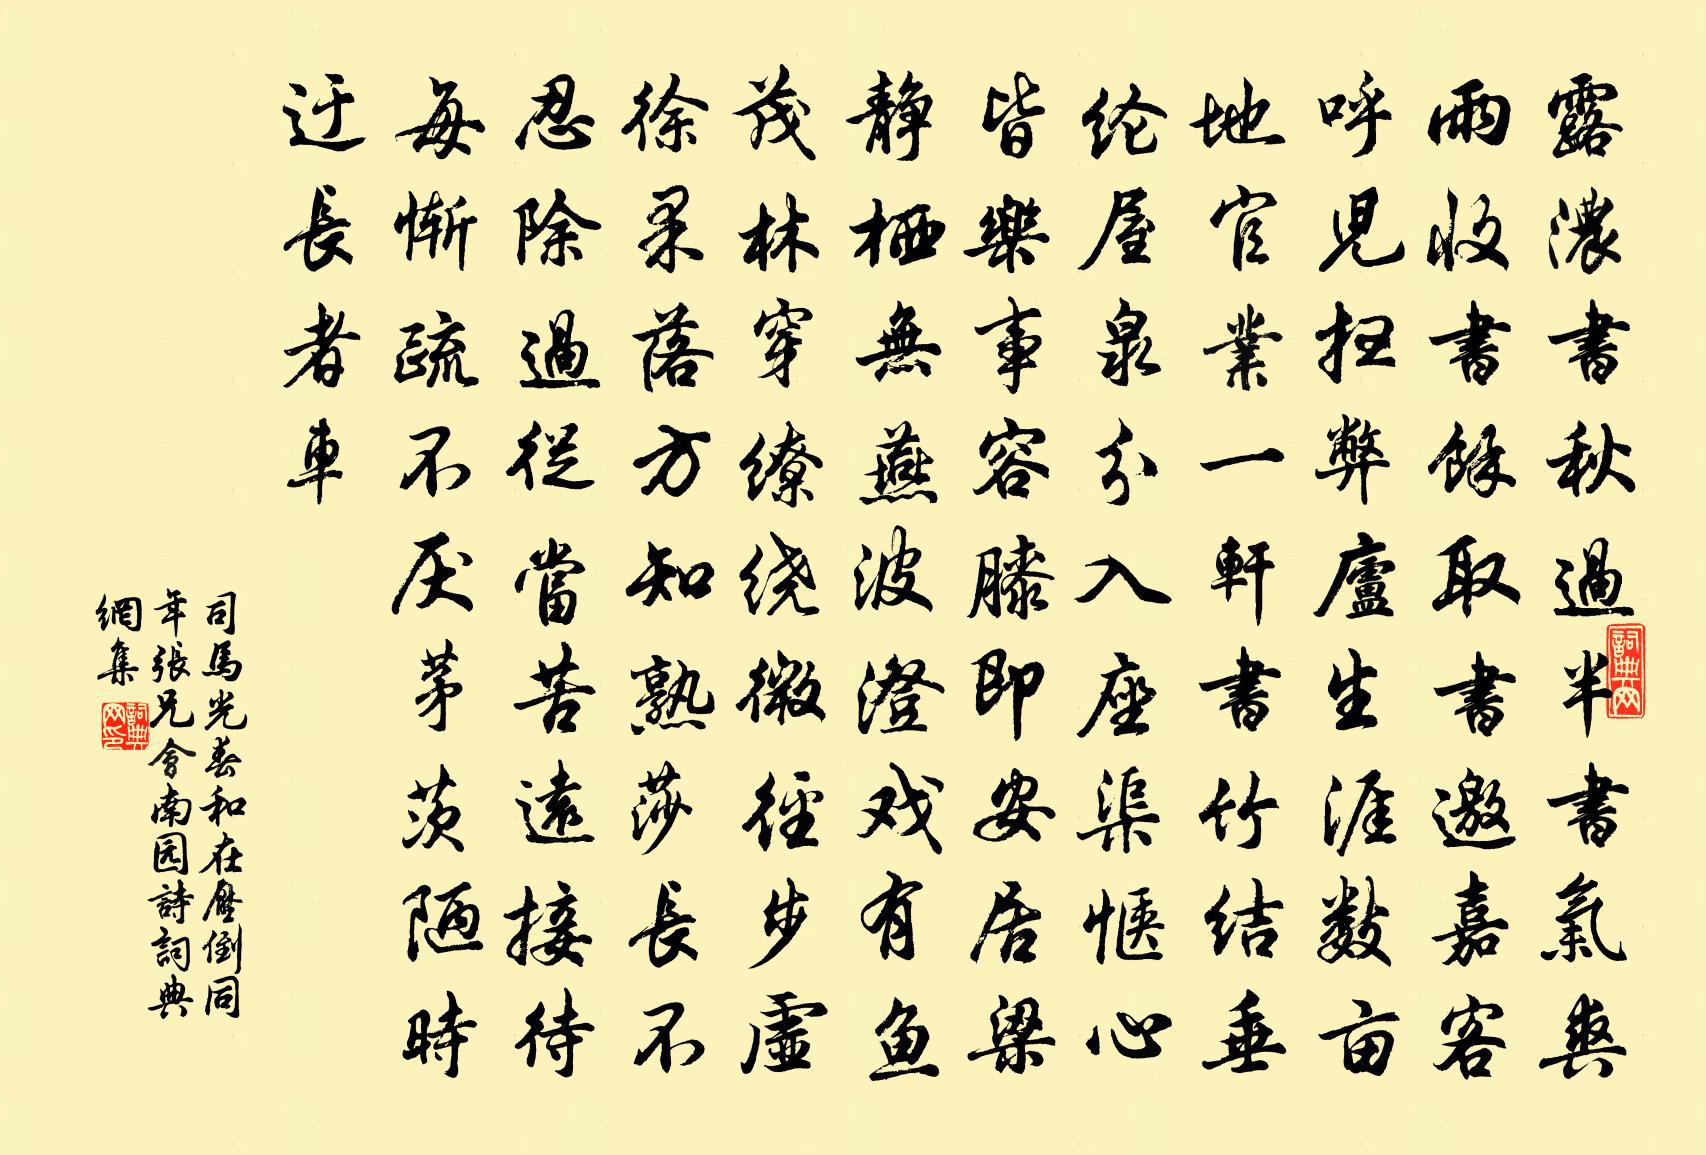 露濃書秋過半書氣爽
雨收書餘取書邀嘉客
呼兒扫弊廬生涯数亩
地官業一軒書竹結垂
纶屋泉分入座渠惬心
皆樂事容膝即安居梁
静栖無燕波澄戏有鱼
茂林穿缭绕微徑步虛
徐果落方知熟莎長不
忍除過從當苦遠接待
每慚疏不厌茅茨陋時
迂長者車
司馬光春和在壓倒同
年張兄會南园詩詞典
網集
詞典网
詞典网印